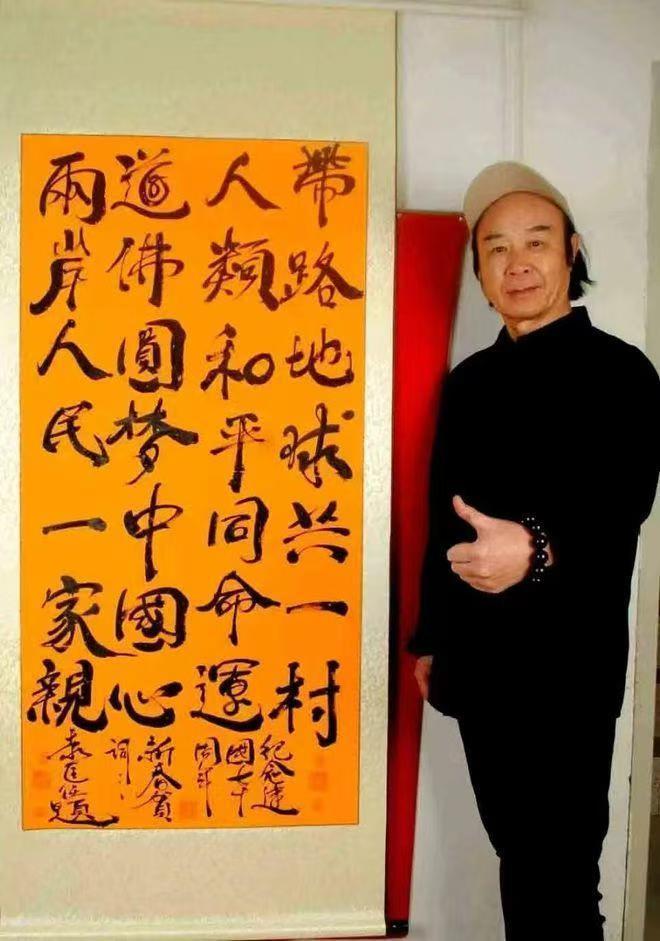 帶路地球共一村
人類和平同命運
道佛圓夢中國心
兩岸人民一家親
紀念建
國七十
周年
新春賀
詞
題